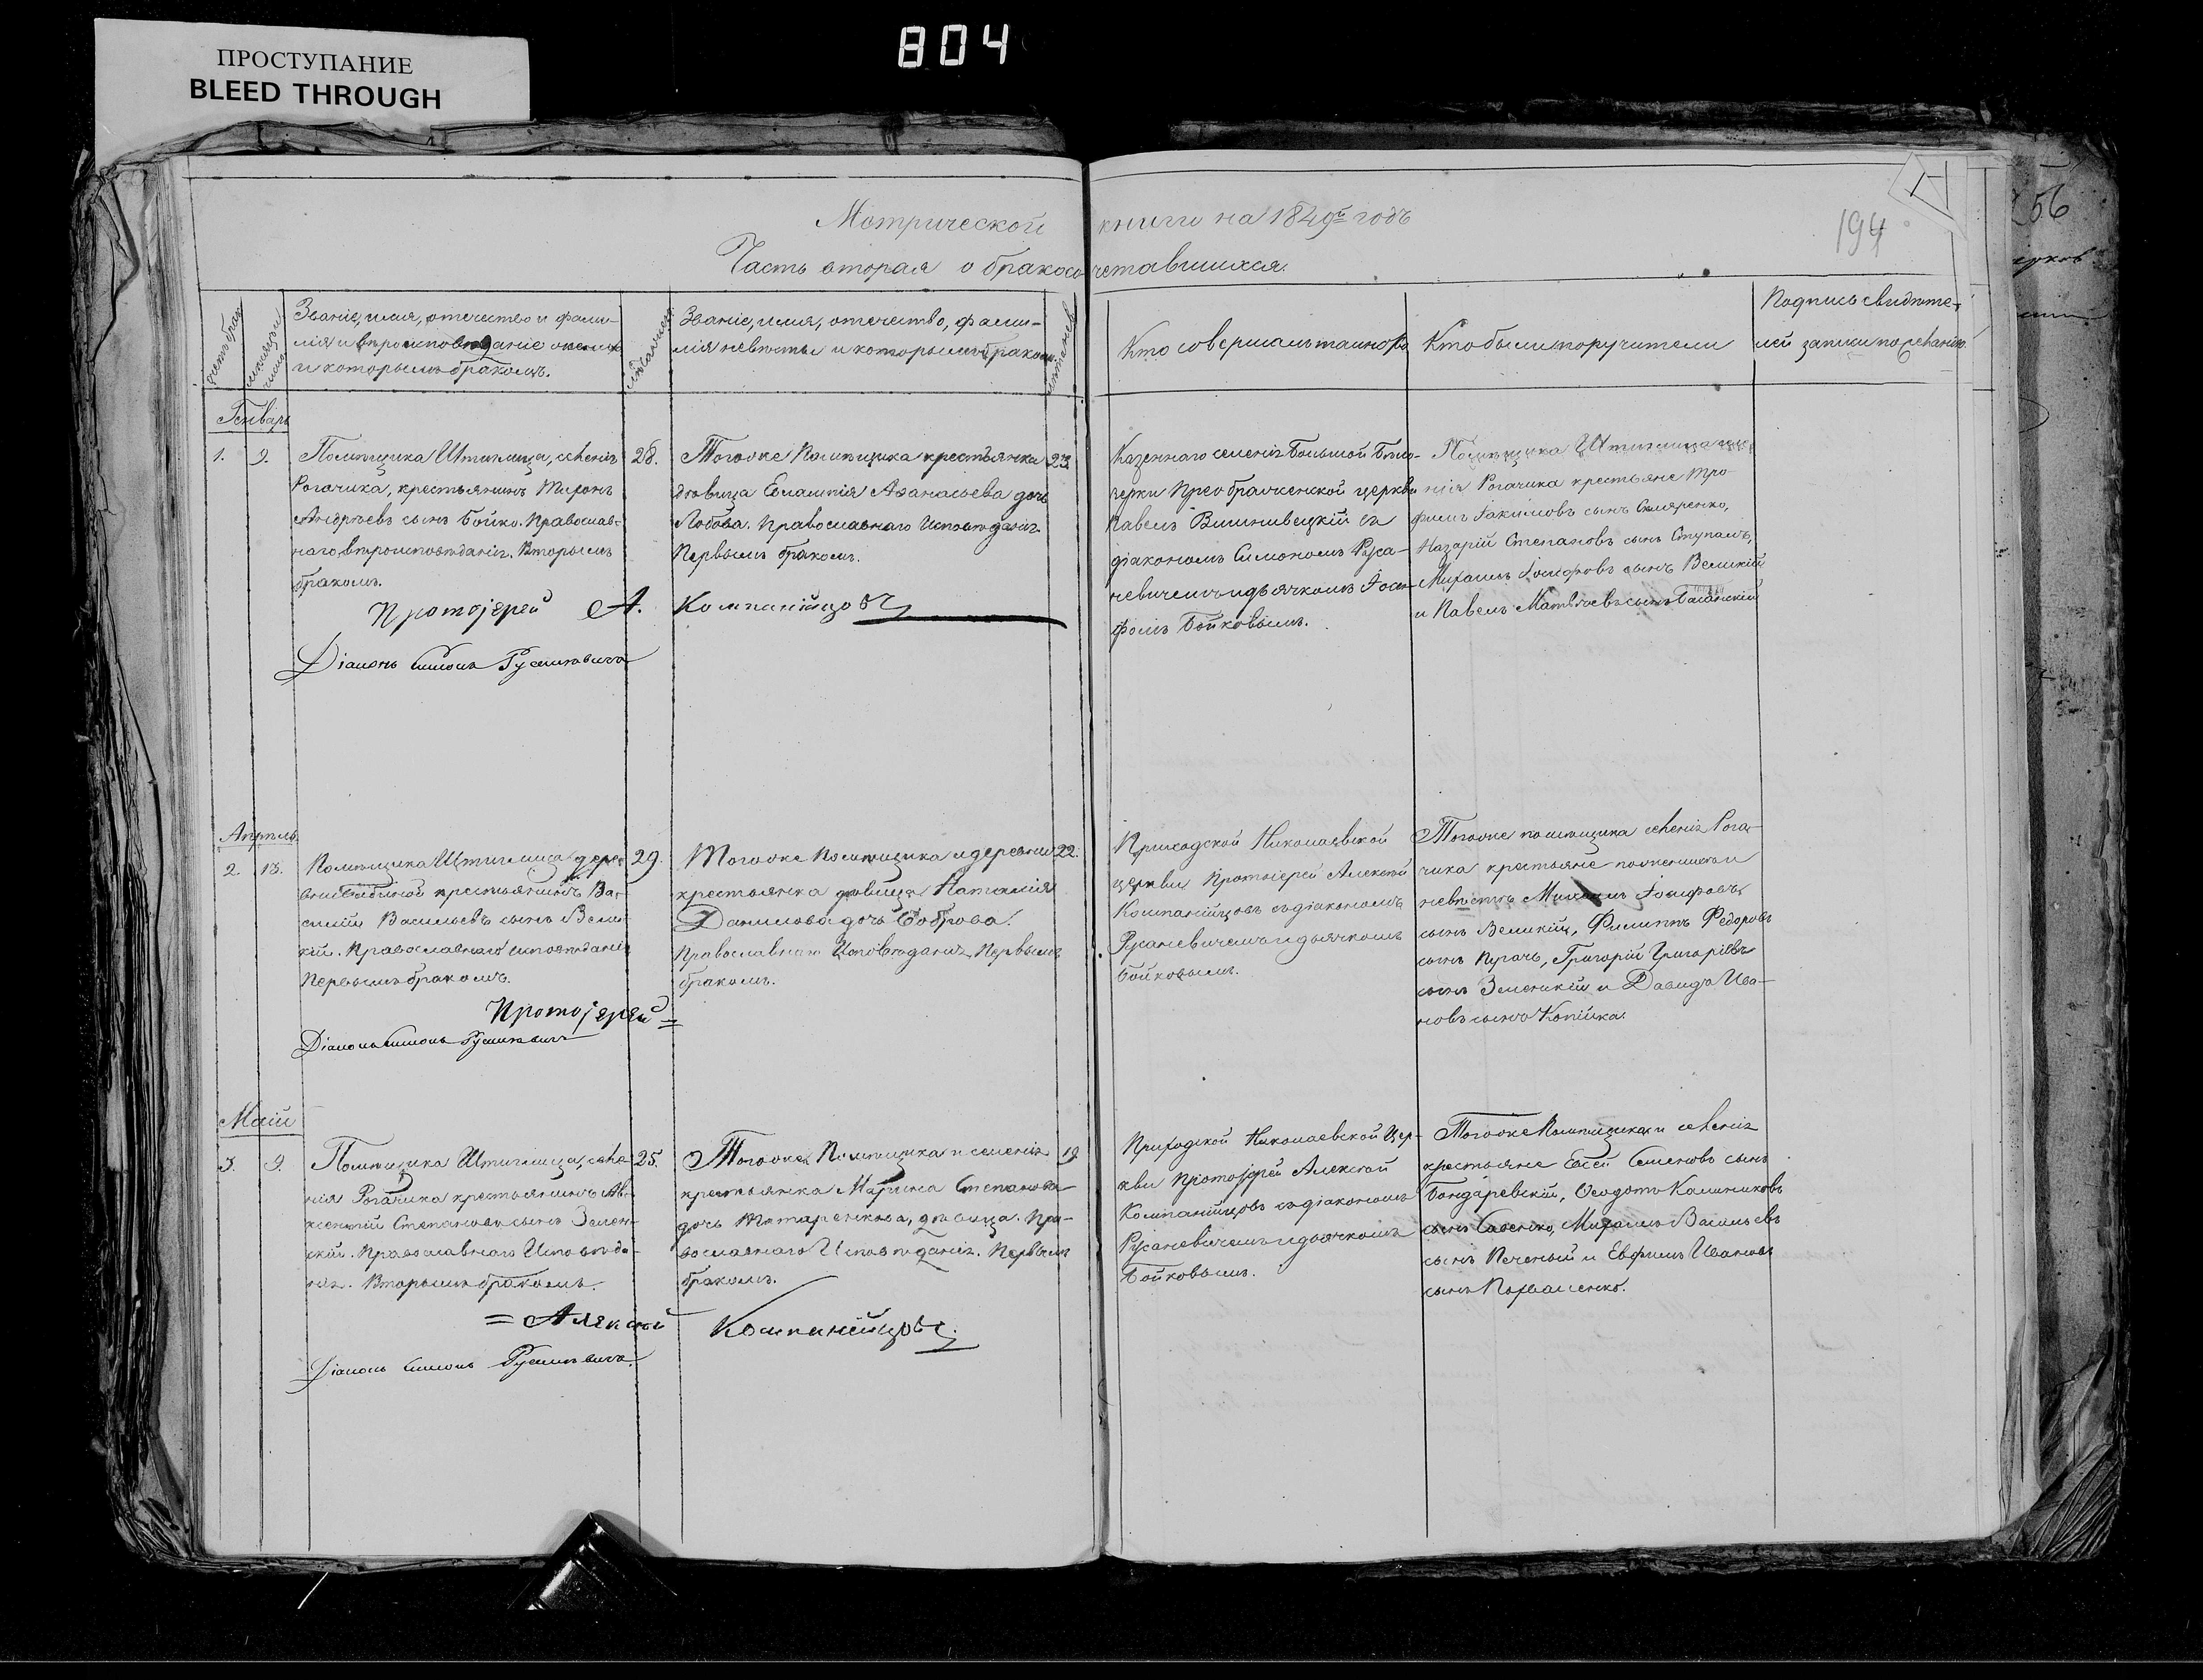 804
ПРОСТУПАНИЕ
BLEED THROUGH
194
56
Метрической книги на 1849й годъ
Часть вторая о бракосочетавшихся.
Званіе, имя, отечество и фами-
лія и вѣроисповѣданіе жениха
и которымъ бракомъ.
Званіе, имя, отечество, фами-
лія невѣсты и которымъ бракомъ.
Кто совершалъ таинство
Кто были поручители
Подпись свидѣте-
лей записи по желанію.
Генварь
1.
9.
Помѣщика Штиглица, селенія
Рогачика, крестьянинъ Миронъ
Андреевъ сынъ Бойко. Православ-
наго вѣроисповѣданія. Вторымъ
бракомъ.
28.
Тогоже Помѣщика крестьянка
дѣвица Евлампія Аѳанасьева дочь
Лобова. Православнаго Исповѣданія.
Первымъ бракомъ.
23.
Казеннаго селенія Большой Бѣло-
зерки Преображенской церкви
Павелъ Вишнивецкій съ
діакономъ Симономъ Руса-
невичемъ и дьячкомъ Іоси-
фомъ Бойковымъ.
Помѣщика Штиглица селе-
нія Рогачика крестьяне Тро-
фимъ Іакимовъ сынъ Скляренко,
Назарій Степановъ сынъ Ступакъ,
Михаилъ Іосифовъ сынъ Великій
и Павелъ Матвѣевъ сынъ
Протоіерей А. Компанійцовъ
Діаконъ Симонъ Русаневичъ
Апрель.
2.
13.
Помѣщика Штиглица дерев-
ни крестьянинъ Ва-
силій Васильевъ сынъ Вели-
кій. Православнаго исповѣданія
Первымъ бракомъ.
29.
Тогоже Помѣщика и деревни
крестьянка дѣвица Наталія
Данилова дочь Боброва.
Православнаго Исповѣданія, Первымъ
бракомъ.
22.
Приходской Николаевской
церкви Протоіерей Алексей
Компанійцовъ съ діакономъ
Русаневичемъ и дьячкомъ
Бойковымъ.
Тогоже помѣщика селенія Рога-
чика крестьяне по женихѣ и
невѣстѣ Михаилъ Іосифовъ
сынъ Великій, Филиппъ Федоровъ
сынъ Прачь, Григорій Григоріевъ
сынъ Зеленскій и Давидъ Ива-
новъ сынъ Копійка.
Протоіерей =
Діаконъ Симонъ Русаневичъ
Маій
3.
9.
Помѣщика Штиглица, селе-
нія Рогачика крестьянинъ Ав-
ксентій Степановъ сынъ Зелен-
скій. Православнаго Исповѣда-
нія. Вторымъ бракомъ.
25.
Тогоже Помѣщика и селенія
крестьянка Марина Степанова
дочь Татаренкова, дѣвица. Пра-
вославнаго Исповѣданія. Первымъ
бракомъ.
19
Приходской Николаевской Цер-
кви Протоіерей Алексей
Компанійцовъ съ діакономъ
Русаневичемъ и дьячкомъ
Бойковымъ.
Тогоже Помѣщика и селенія
крестьяне Евсей Семеновъ сынъ
Бондаревскій, Ѳеодотъ Калиниковъ
сынъ Савенко, Михаилъ Васильевъ
сынъ Печеный и Евфимъ Ивановъ
сынъ
= Алексей Компанійцовъ.
Діаконъ Симонъ Русаневичъ.